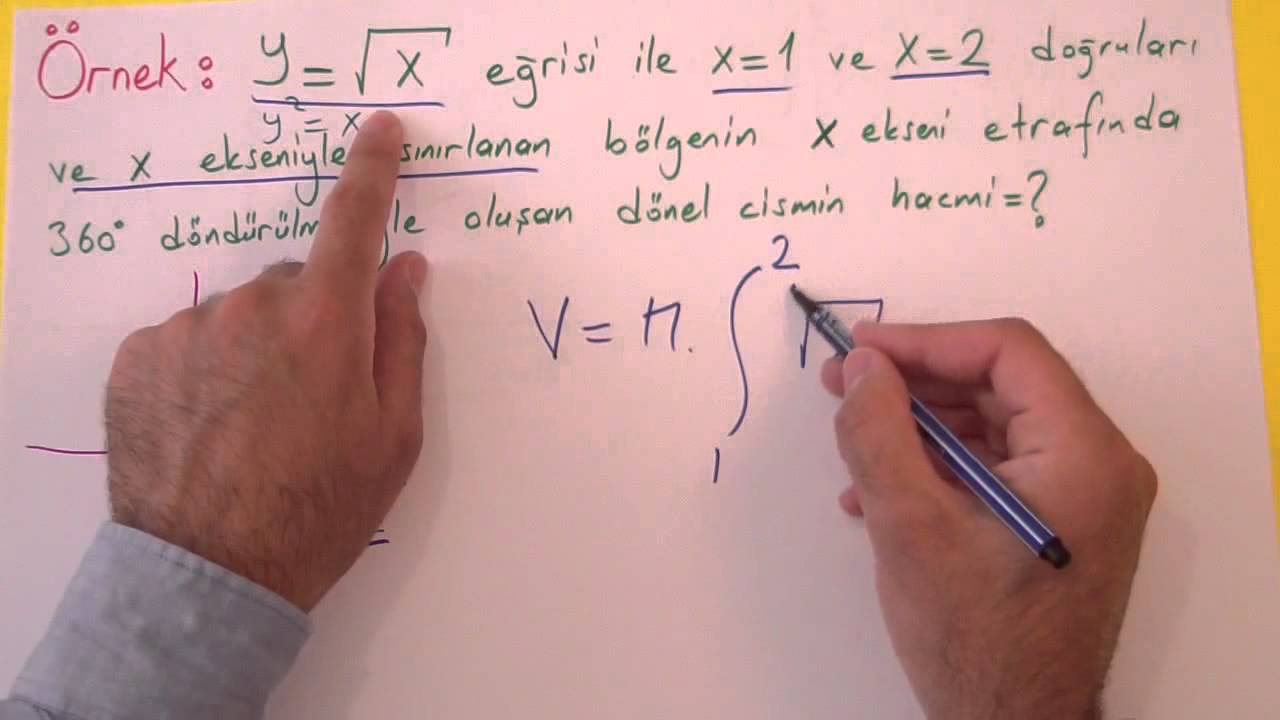 Örnek: y = √x eğrisi ile x=1 ve x=2 doğruları
y² = x
ve x ekseniyle sınırlanan bölgenin x ekseni etrafında
360° oluşan dönel cismin hacmi=?
2
V = π. ∫ √
1
=